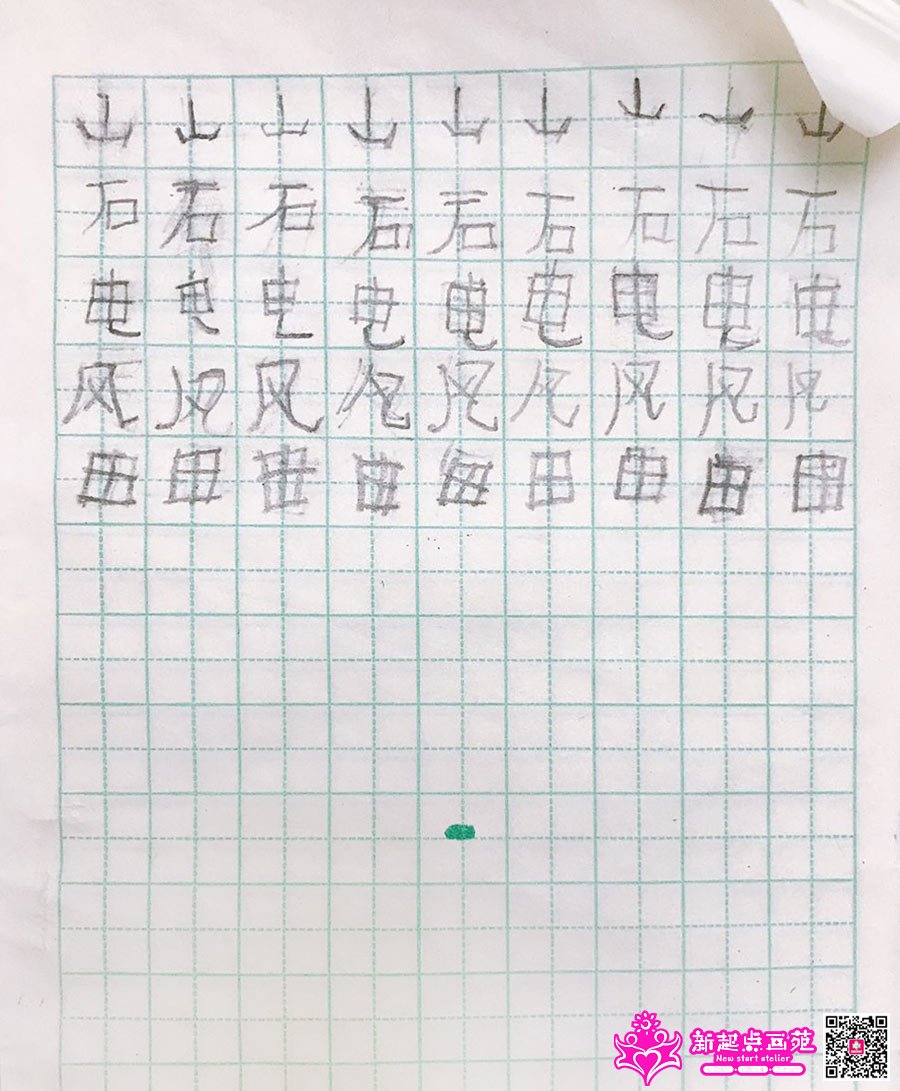 山山山山山山山山山
石石石石石石石石石
电电电电电电电电电
风风风风风风风风风
田田田田田田田田田
新起点画苑
New start atelier